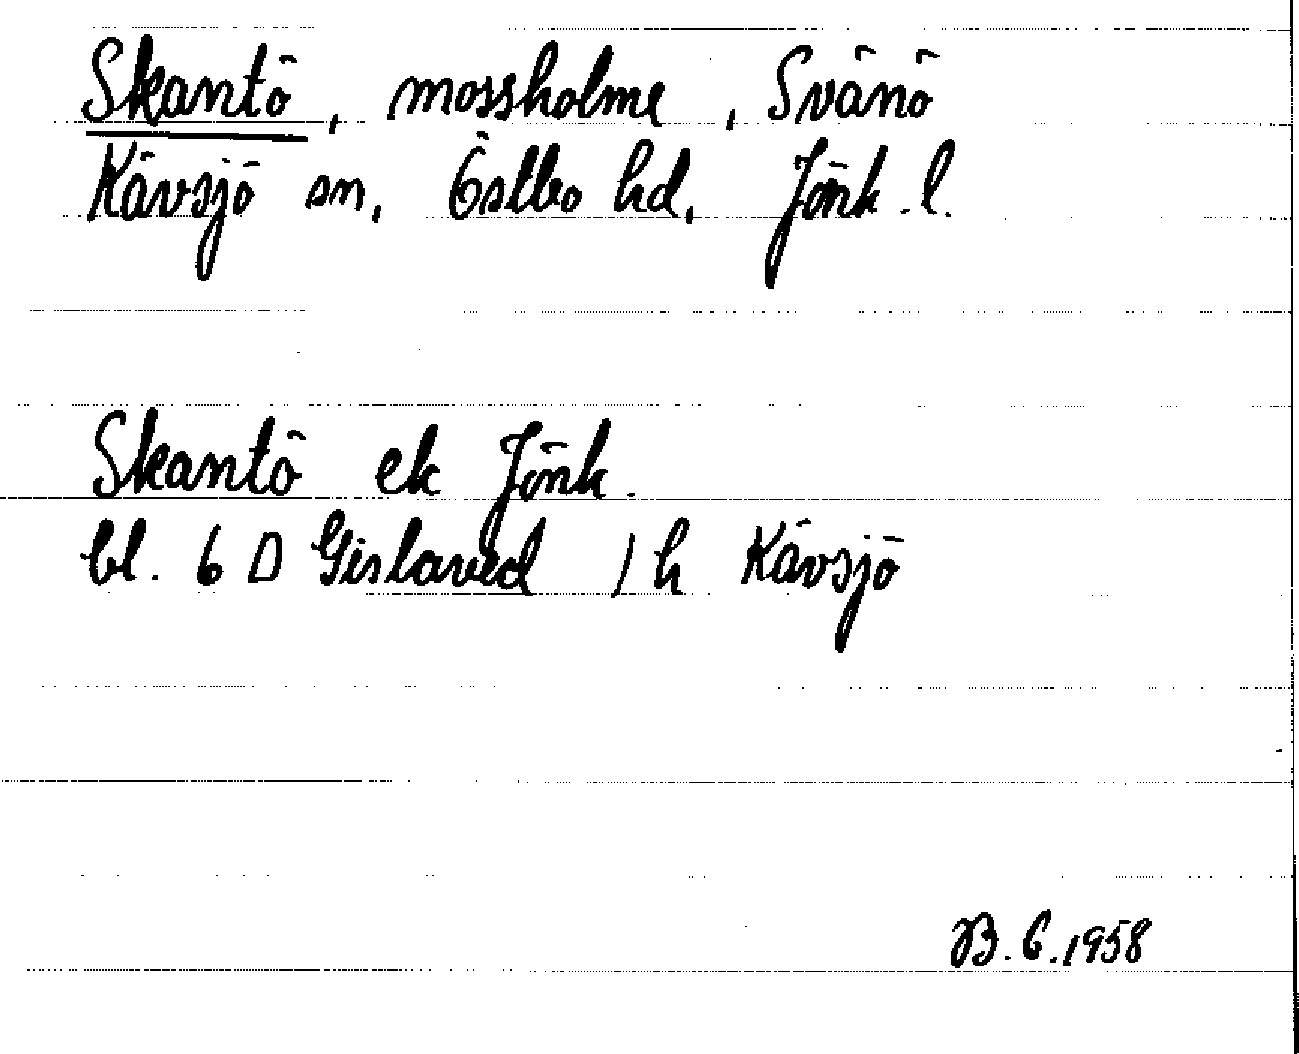 Skantö, mossholme, Svänö
Kävsjö sn, Östbo hd, Jönk. l.
Skantö ek Jönk.
bl. 6 D Gislaved 1 h Kävsjö
B. G. 1958